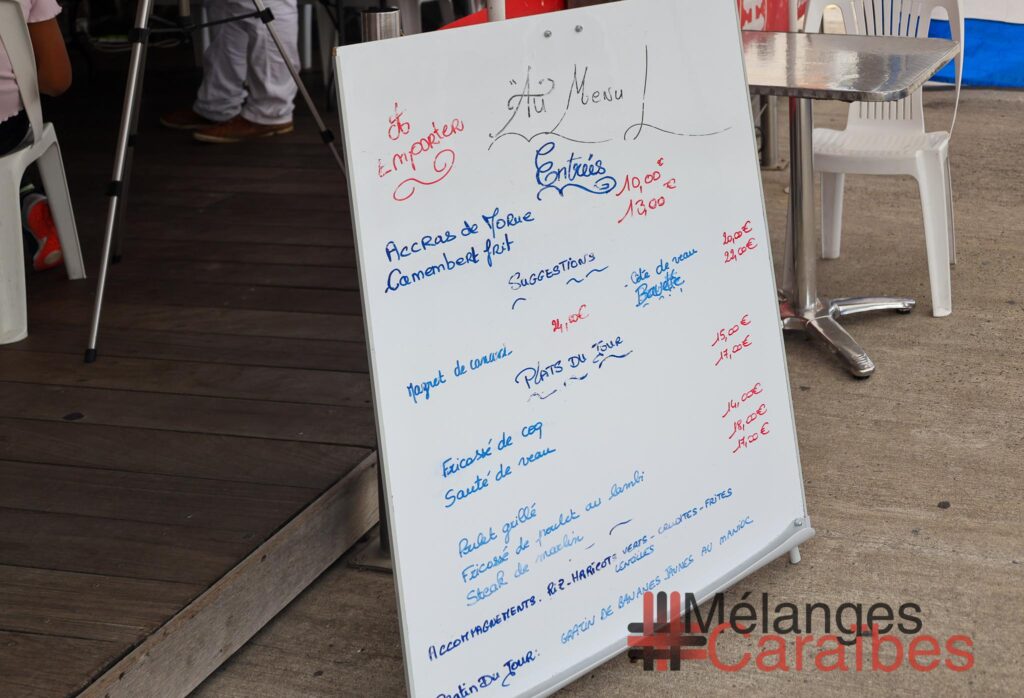 "Au" Menu
à
Emporter
Entrées
Accras de Morue 10,00 €
Camembert frit 13,00 €
Suggestions
Côte de veau 20,00€
Bavette 22,00€
Magret de canard 24,00€
Plats Du Jour
Fricassé de coq 15,00€
Sauté de veau 17,00€
Poulet grillé 14,00€
Fricassé de poulet au lambi 18,00€
Steak de marlin 17,00€
Accompagnements. Riz - Haricots verts - Crudités - Frites
Lentilles
Gratin Du Jour: Gratin de bananes jaunes au manioc
Mélanges
Caraïbes